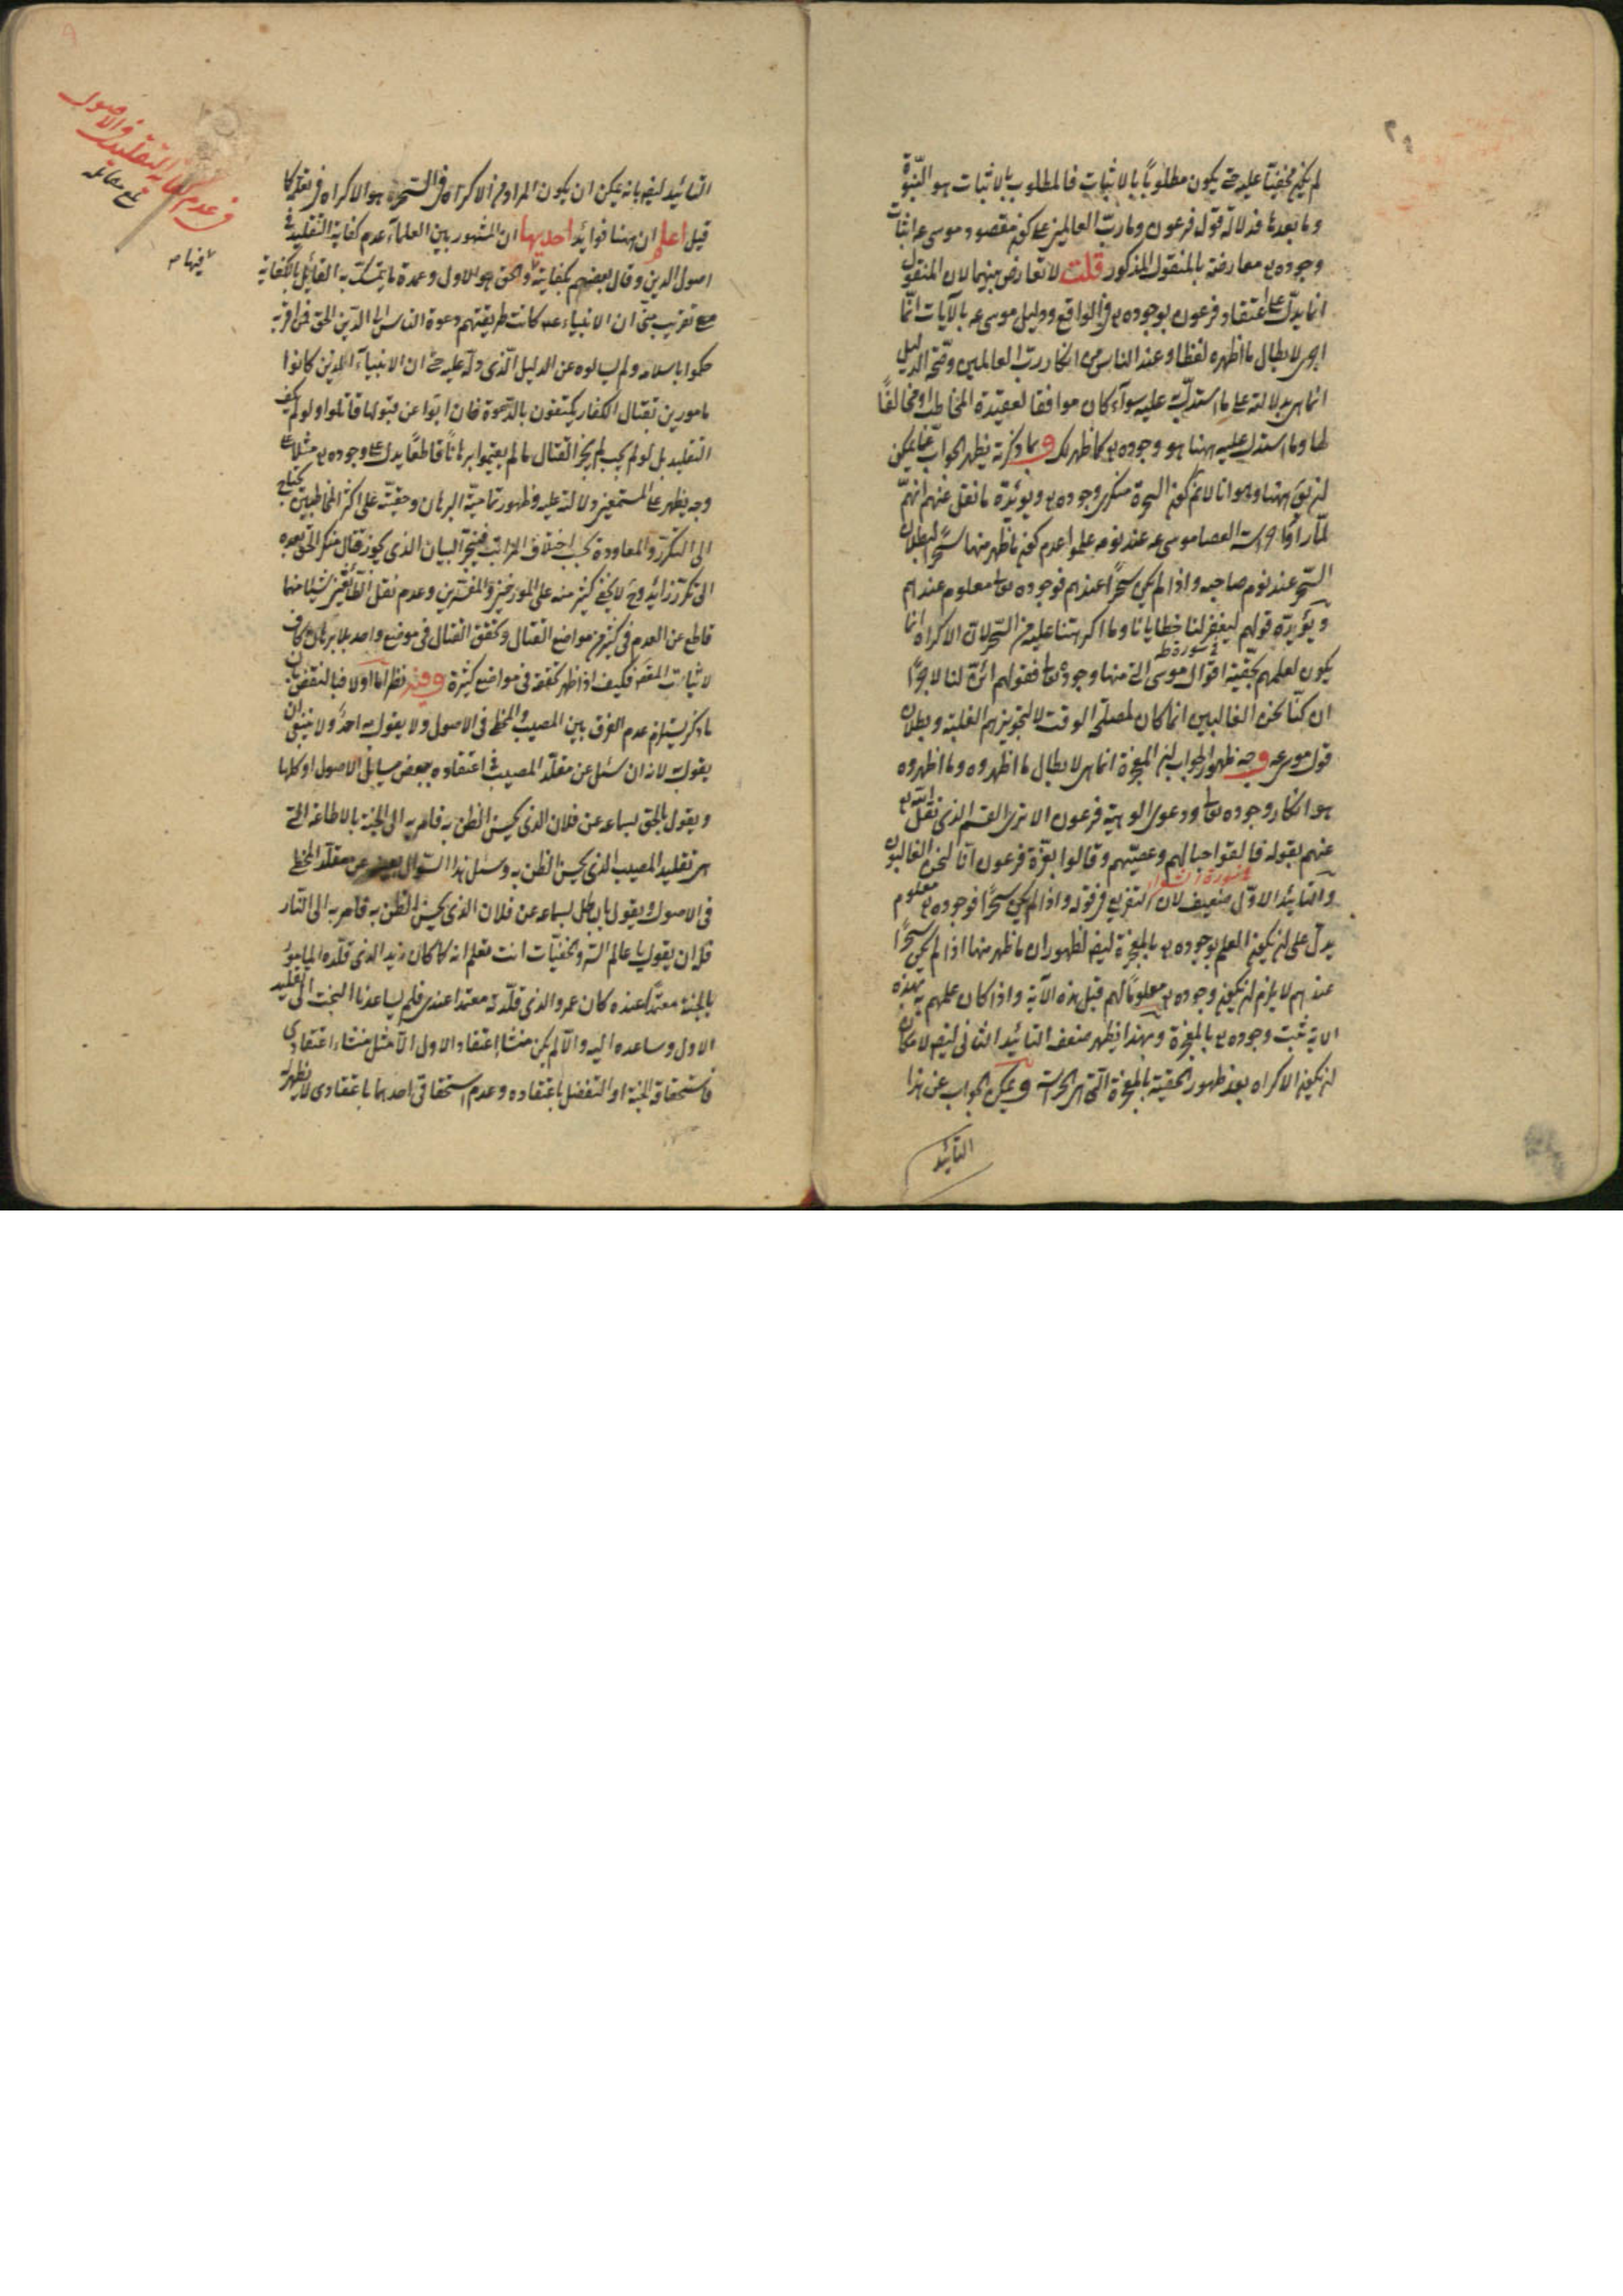 لم يكن مخفيا عليه حتى يكون مطلوباً بالاثبات فالمطلوب بالاثبات هو النبوّة
وما بعدها فدلالة قول فرعون وما ربّ العالمين على كون مقصود موسى عه اثبات
وجوده تع معارضة بالمنقول المذكور قلت لا تعارض بينهما لان المنقول
انما يدلّ على اعتقاد فرعون بوجوده تع في الواقع ودليل موسى عه بالآيات انّما
هى لابطال ما اظهره لفظا وعند الناس من انكار ربّ العالمين وصحّة الدليل
انما هي بدلالته على ما استدلّ عليه سواء كان موافقا لعقيدة المخاطب او مخالفًا
لها وما استدل عليه ههنا هو وجوده تع كما ظهر لك وبما ذكرته يظهر الجواب عمّا يمكن
ان يق ههنا وهو انا لانم كون السحرة منكرى وجوده تع ويؤيّده ما نقل عنهم انهمّ
لمّا رأوا حراسة العصا موسى عه عند نومه علموا عدم كون ما ظهر منها سحرًا لبطلان
السّحر عند نوم صاحبه واذا لم يكن سحرًا عندهم فوجوده تعا معلوم عندهم
ويؤيده قولهم ليغفر لنا خطايانا وما اكرهتنا عليه من السّحر لان الاكراه انّما
سورة طه
يكون لعلمهم بحقّية اقوال موسى التى منها وجوده تعا فقولهم ائنّ لنا لاجرًا
ان كنّا نحن الغالبين انما كان لمصلحة الوقت لا لتجويزهم الغلبة وبطلان
قول موسى عه وجه ظهور الجواب ان المعجزة انما هى لابطال ما اظهروه وما اظهروه
هو انكار وجوده تعا ودعوى الوهية فرعون الا ترى القسم الذى نقل الله تع
عنهم بقوله فالقوا حبالهم وعصيّهم وقالوا بعزّة فرعون انّا لنحن الغالبون
سورة الشعرا
والتأييد الاوّل ضعيف لان التفريع في قوله واذا لم يكن سحرًا فوجوده تع معلوم
يدلّ على ان يكون العلم بوجوده تع بالمعجزة ليضم لظهور ان ما ظهر منها اذا لم يكن سحرًا
عندهم لا يلزم ان يكون وجوده تع معلوما لهم قبل هذه الآية واذا كان علمهم به بهذه
الاية ثبت وجوده تع بالمعجزة وبهذا يظهر ضعف التأييد الثانى ايض لامكان
ان يكون الاكراه بعد ظهور الحقية بالمعجزة التى هى الحراسة ويمكن الجواب عن هذا
التأييد
التأييد ايض بانه يمكن ان يكون المراد من الاكراه في السّحر هو الاكراه في تعلّمه كما
قيل اعلم ان ههنا فوائد احديها ان المشهور بين العلماء عدم كفاية التقليد في
اصول الدين وقال بعضهم بكفايته والحق هو الاول وعمدة ما يتمسّك به القائل بالكفاية
مع تقريب منّى ان الانبياء عه كانت طريقتهم دعوة الناس الى الدّين الحق فمن اقرّ به
حكموا باسلامه ولم يسألوه عن الدليل الّذى دلّه عليه حتى ان الانبياء الذين كانوا
مامورين بقتال الكفار يكتفون بالدّعوة فان ابوا عن قبولها قاتلوا ولو لم يكف
التقليد بل لو لم يجب لم يجز القتال ما لم يقيموا برهانًا قاطعًا يدل على وجوده تع مثلا على
وجه يظهر على المستمعين دلالته عليه وظهور تماميّة البرهان وحقيّته على اكثر المخاطبين يحتاج
الى التكرّر والمعاودة بحسب اختلاف المراتب فينجرّ البيان الذى يجوز قتال منكر الحق بعده
الى تكرّر زايد وح لا يخفى كثير منه على المورخين والمفسّرين وعدم نقل الطّائفتين شيئا منها
قاطع عن العدم في كثير من مواضع القتال وتحقق القتال في موضع واحد بلا برهان كاف
لاثبات المقصّ فكيف اذا ظهر تحققه في مواضع كثيرة وفيه نظر امّا اولا فبالنقض بان
ما ذكر يستلزم عدم الفرق بين المصيب والمخطى في الاصول ولا يقول به احد ولا ينبغى ان
يقول به لانه ان سئل عن مقلّد المصيب في اعتقاده ببعض مسايل الاصول او كلها
ويقول بالحق لسماعه عن فلان الذى يحسن الظن به فامر به الى الجنة بالاطاعة التى
هى تقليد المصيب الذى يحسن الظن به وسئل هذا السؤال بعينه عن مقلّد المخطى
في الاصول ويقول بالباطل لسماعه عن فلان الذى يحسن الظن به فامر به الى النار
فله ان يقول يا عالم السّر والخفيّات انت تعلم انه كما كان زيد الذى قلّده المامور
بالجنة معتمدًا عنده كان عمرو الذى قلّدته معتمدا عندى فلم يساعدنا البخت الى تقليد
الاول وساعده اليه والّا لم يكن منشأ اعتقاد الاول الّا مثل منشاء اعتقادى
فاستحقاقه الجنة او التفضل باعتقاده وعدم استحقاقى احدهما باعتقادى لا يظهر له
في عدم كفاية التقليد في الاصول
فيها م